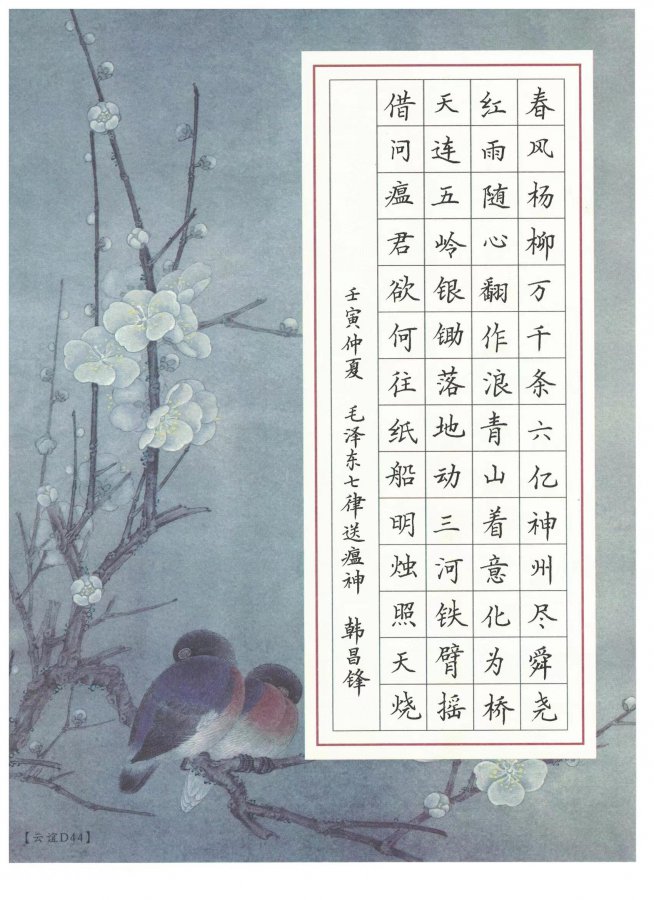 春风杨柳万千条六亿神州尽舜尧
红雨随心翻作浪青山着意化为桥
天连五岭银锄落地动三河铁臂摇
借问瘟君欲何往纸船明烛照天烧
壬寅仲夏 毛泽东七律送瘟神 韩昌锋
【云谊D44】